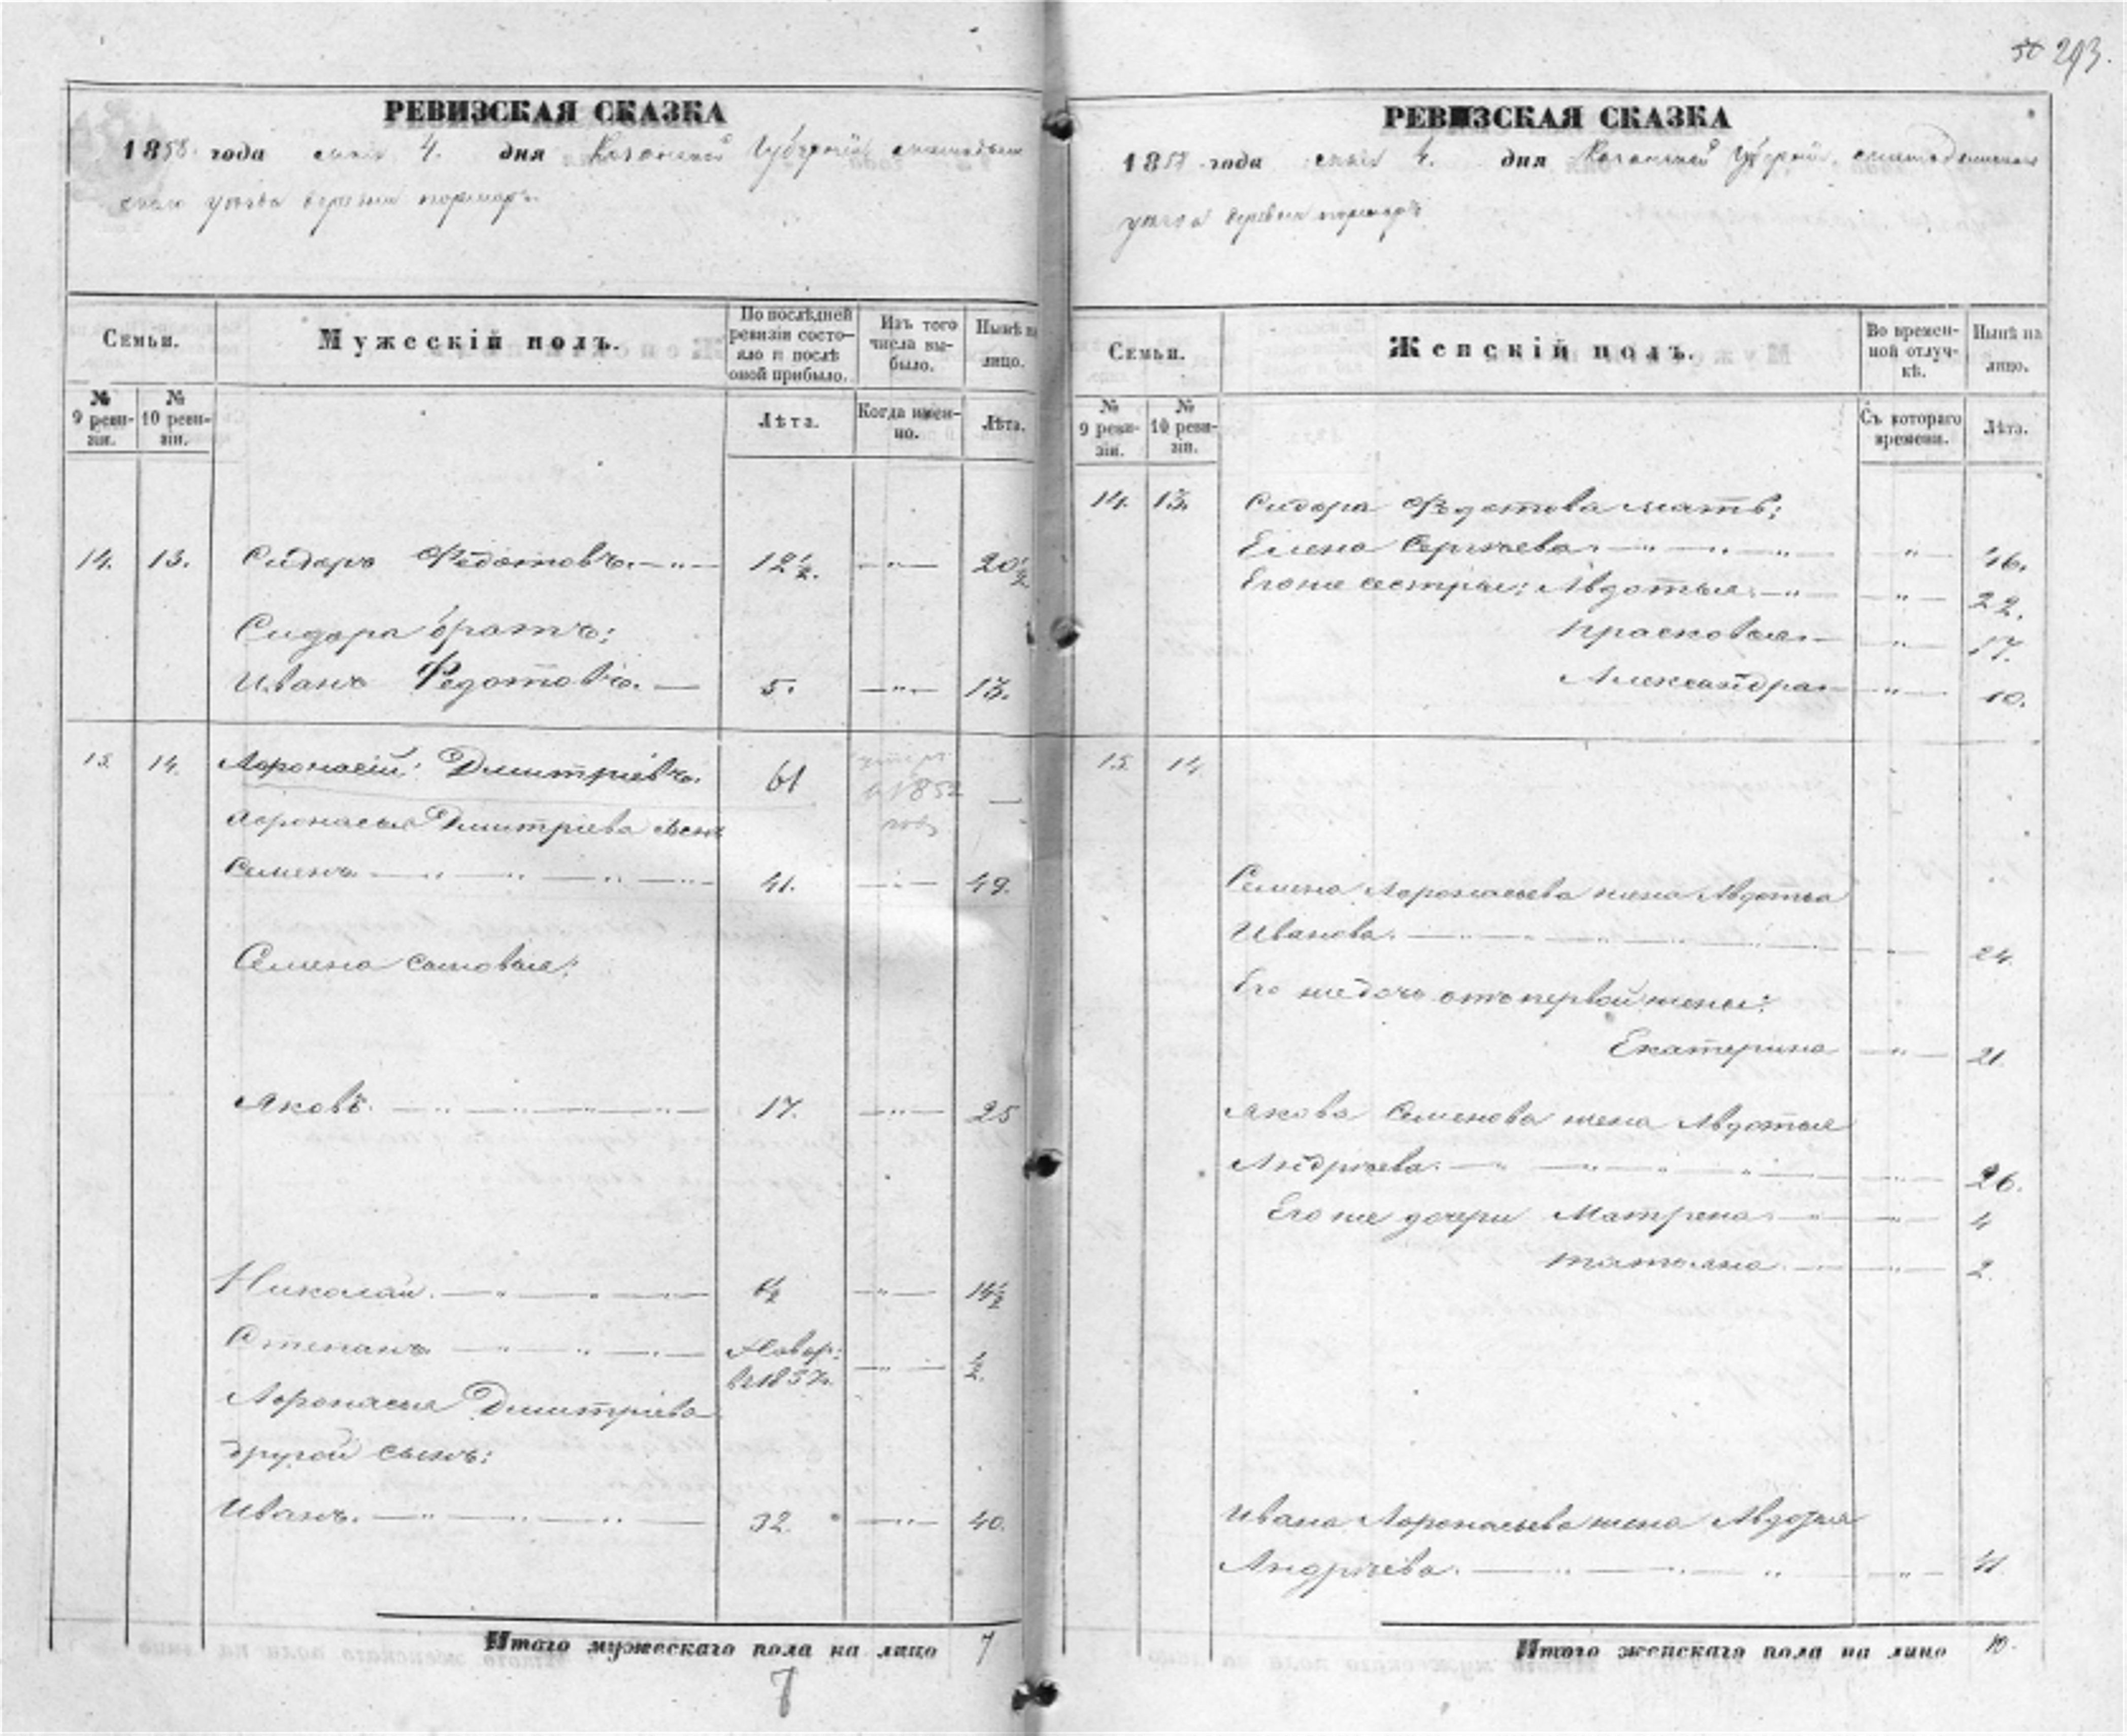 293.
РЕВИЗСКАЯ СКАЗКА
1858 года мая 4. дня Казанской Губерніи
уѣзда деревни
Семьи.
Мужескій полъ.
По послѣдней ревизіи состояло и послѣ оной прибыло.
Изъ того числа выбыло.
Нынѣ на лицо.
№ 9 ревизіи.
№ 10 ревизіи.
Лѣта.
Когда именно.
Лѣта.
14. 13. Сидоръ Федотовъ. 12½. 20½
Сидора братъ:
Иванъ Федотовъ. 5. 13.
15. 14. Афонасій Дмитріевъ. 61 умеръ в 1852 году —
Афонасья Дмитріева
Семенъ 41. 49.
Семена сыновья:
Яковъ. 17. 25
Николай. 14½
Степанъ Новор: в 1857. ½.
Афонасья Дмитріева
другой сынъ:
Иванъ. 32. 40.
Итого мужескаго пола на лицо 7
7
РЕВИЗСКАЯ СКАЗКА
1858 года мая 4. дня Казанской Губерніи
уѣзда деревни
Семьи.
Женскій полъ.
Во временной отлучкѣ.
Нынѣ на лицо.
№ 9 ревизіи.
№ 10 ревизіи.
Съ котораго времени.
Лѣта.
14. 13. Сидора Федотова мать:
Елена Сергѣева. 46.
Его же сестры: Авдотья 22.
Прасковья 17.
Александра 10.
15. 14.
Семена Афонасьева жена Авдотья
Иванова. 24.
Его же дочь отъ первой жены:
Екатерина 21
Якова Семенова жена Авдотья
Андреева. 26.
Его же дочери Матрена 4
Татьяна 2.
Ивана Афонасьева жена Авдотья
Андреева. 41
Итого женскаго пола на лицо 10.